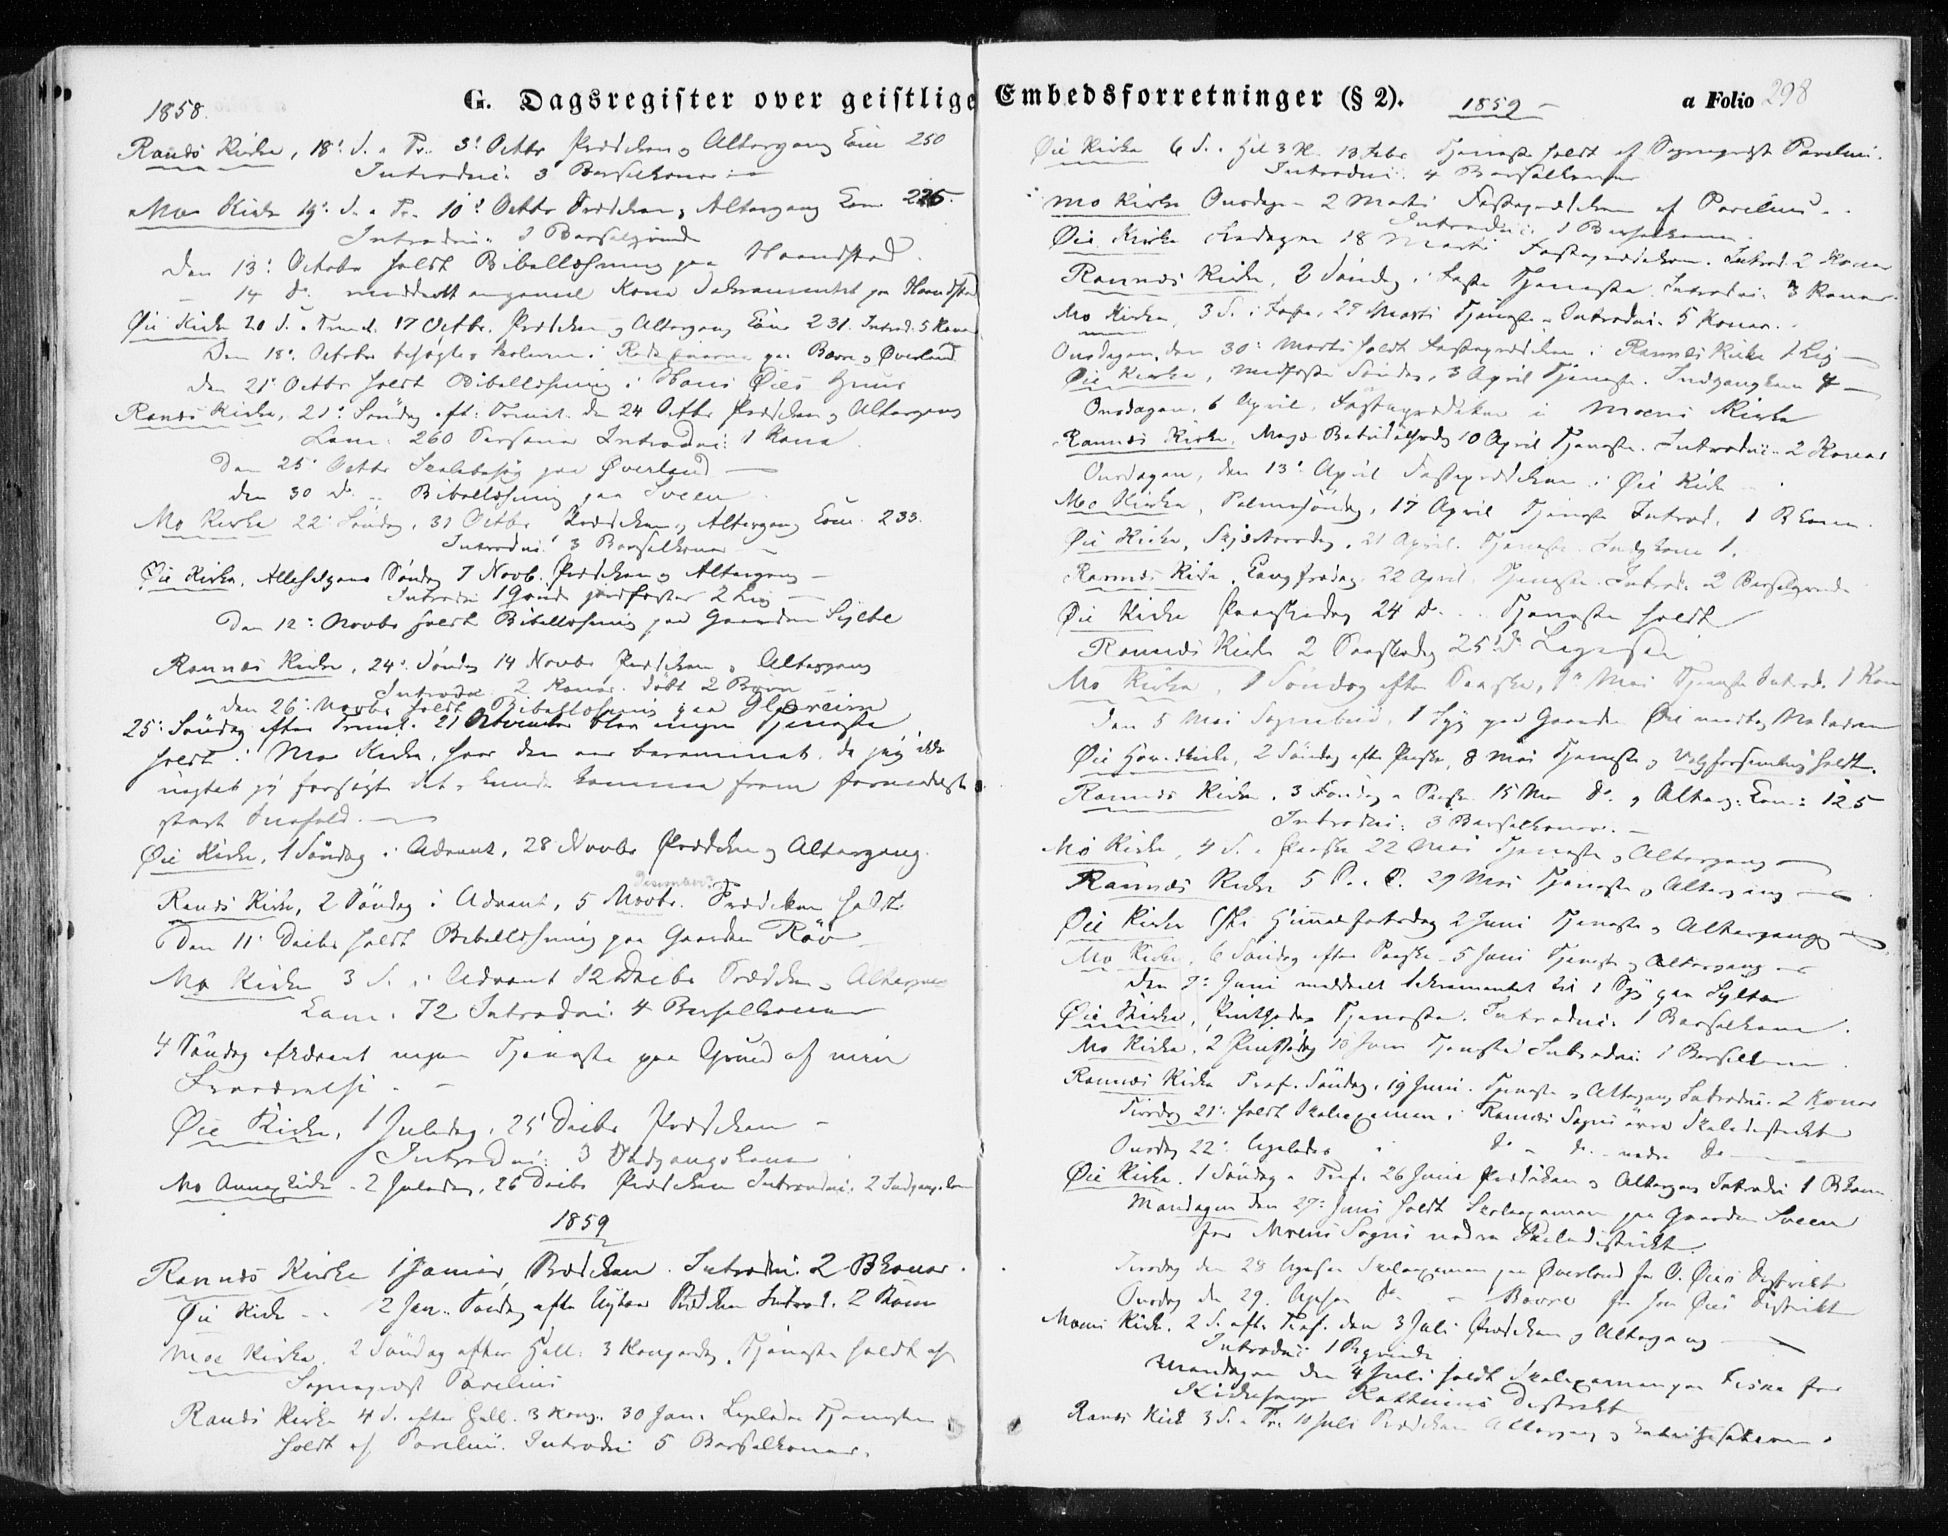 G. Dagsregister over geistlige Embedsforretninger (§ 2).
a Folio 298
1858.
Ranæs Kirke, 18: S. a Tr. 3: Octbr Prædiken og Altergang Com 250
Introduc: 3 Barselkoner
Moe Kirke 19: S. a Tr. 10: Octbr Prædiken, Altergang Com
Introduc: 1 Barselqvinde
Den 13: October holdt Bibellæsning paa Haandstad.
14 d° meddeelt en gammel Kone Sakramentet paa
Øie Kirke 20 S. a Trinit. 17 Octbr. Prædiken og Altergang Com 231. Introd. 5 Koner
Den 18: October besøgte Skolerne i paa Bævre og Øverland
den 21: Octbr holdt Bibellæsning i Hans Øies Huus
Ranæs Kirke, 21: Søndag eft: Trinit. den 24 Octbr Prædiken og Altergang
Com: 260 Personer Introduc: 1 Kone
Den 25: Octbr Skolebesøg paa Øverland
den 30 d° Bibellæsning paa Sveen
Mo Kirke 22: Søndag, 31 Octbr Prædiken og Altergang Com. 233.
Introduc: 3 Barselkoner
Øie Kirke, Allehelgens Søndag 7 Novb. Prædiken og Altergang
Introduc 1 jordfæstet 2 Lig
Den 12: Novbr holdt Bibellæsning paa Gaarden Sylte
Rannæs Kirke, 24: Søndag 14 Novbr Prædiken og Altergang
Introduc. 2 Koner. døbt 2 Børn
den 26: Novbr holdt Bibellæsning paa Glæreim
25: Søndag efter Trinit. 21 November blev ingen Tjeneste
holdt i Moe Kirke, hvor den var berammet, da jeg ikke
uagtet jeg forsøgte det, kunde komme frem formedelst
stærkt Snefald.
Øie Kirke, 1 Søndag i Advent, 28 Novbr Prædiken og Altergang.
Ranæs Kirke, 2 Søndag i Advent, 5 Novbr. Prædiken holdt
Den 11: Decbr holdt Bibellæsning paa Gaarden Røv
Mo Kirke 3 S. i Advent 12 Decbr Prædiken, Altergang
Com. 72 Introduc: 4 Barselkoner
4 Søndag af Advent ingen Tjeneste paa Grund af min
Fraværelse.
Øie Kirke, 1 Juledag, 25 Decbr Prædiken
Introduc: 3
Mo Annexkirke 2 Juledag, 26 Decbr Prædiken Introduc: 2
1859
Rannæs Kirke 1 Januar, Prædiken. Introduc. 2 Bkoner.
Øie Kirke 2 Jan. Søndag efter Nytaar Prædiken Introd. 2 Koner
Moe Kirke. 2 Søndag efter Hell: 3 Kongerdag, Tjeneste holdt af
Sognepræst Parelius
Ranæs Kirke 4 S. efter Hell. 3 Kong. 30 Jan. Ligeledes Tjenesten
holdt af Parelius. Introduc 5 Barselkoner.
1859
Øie Kirke 6 S. a Hel 3 K. 13 Febr. Tjeneste holdt af Sognepræst Parelius.
Introduc: 4 Barselkoner
Mo Kirke Onsdagen 2 Marts Fasteprædiken af Parelius.
Introduc: 1 Barselkone
Øie Kirke 18 Marts Fasteprædiken. Introd. 2 Koner
Rannæs Kirke, 2 Søndag i Faste Tjeneste. Introduc: 3 Koner.
Mo Kirke, 3 S. i Faste, 27 Marts Tjeneste. Introduc. 5 Koner.
Onsdagen, den 30: Marts holdt Fasteprædiken i Rannæs Kirke 1 Lig
Øie Kirke, Midfaste Søndag, 3 April Tjeneste. Indgangskone 4
Onsdagen, 6 April, Fasteprædiken i Moens Kirke
Rannæs Kirke, Mariæ Bebudelsesdag 10 April Tjeneste. Introduc. 2 Koner
Onsdagen, den 13: April Fasteprædiken i Øie Kirke
Mo Kirke, Palmesøndag, 17 April Tjeneste Introd. 1 BKone.
Øie Kirke, Skjærtorsdag, 21 April. Tjeneste. 1.
Rannæs Kirke, Langfredag. 22 April. Tjeneste. Introd. 2 Barselqvinder
Øie Kirke Paaskedag 24 d° Tjeneste holdt
Rannæs Kirke 2 Paaskedag 25 d° Ligesaa
Mo Kirke, 1 Søndag efter Paaske, 1 Mai Tjeneste Introd. 1 Kone
Den 5 Mai Sognebud, 1 Syg paa Gaarden Øie modtog Nadveren
Øie Hovedkirke, 2 Søndag efter Paaske, 8 Mai Tjeneste og Valgforsamling holdt.
Rannæs Kirke, 3 Søndag a Paaske 15 Mai d° og Alterg: Com: 125
Introduc: 3 Barselkoner.
Mo Kirke, 4 S. a Paaske 22 Mai Tjeneste og Altergang
Rannæs Kirke 5 S. a P. 29 Mai Tjeneste og Altergang
Øie Kirke Chr Himmelfartsdag 2 Juni Tjeneste og Altergang
Mo Kirke, 6 Søndag efter Paaske 5 Juni Tjeneste og Altergang
den 7: Juni meddeelt Sakramentet til 1 Syg paa Sylte
Øie Kirke, Pintsedag Tjeneste. Introduc. 1 Barselkone.
Mo Kirke, 2 Pintsedag 13 Juni Tjeneste Introduc 1 Barselkone
Rannæs Kirke Tref. Søndag, 19 Juni. Tjeneste og Altergang Introduc. 2 Koner
Tirsdag 21: holdt Skoleexamen i Rannæs Sogns øvre Skoledistrikt
Onsdag 22: ligeledes i d° d° nedre d°
Øie Kirke. 1 Søndag a Tref. 26 Juni Prædiken og Altergang Introduc 1 BKone
Mandagen den 27: Juni holdt Skoleexamen paa Gaarden Sveen
for Moens Sogns nedre Skoledistrikt.
Tirsdag den 28 ligesaa Skoleexamen paa Øverland for O. Øies Distrikt
Onsdag den 29. ligesaa d° Bævre for Øies Distrikt
Moens Kirke. 2 S. efter Tref. den 3 Juli Prædiken og Altergang
Introduc 1 Bqvinde
Mandagen den 4 Juli holdt Skoleexamen paa for
Kirkesanger Distrikt
Ranæs Kirke 3 S. a Tr. 10 Juli Prædiken Altergang og